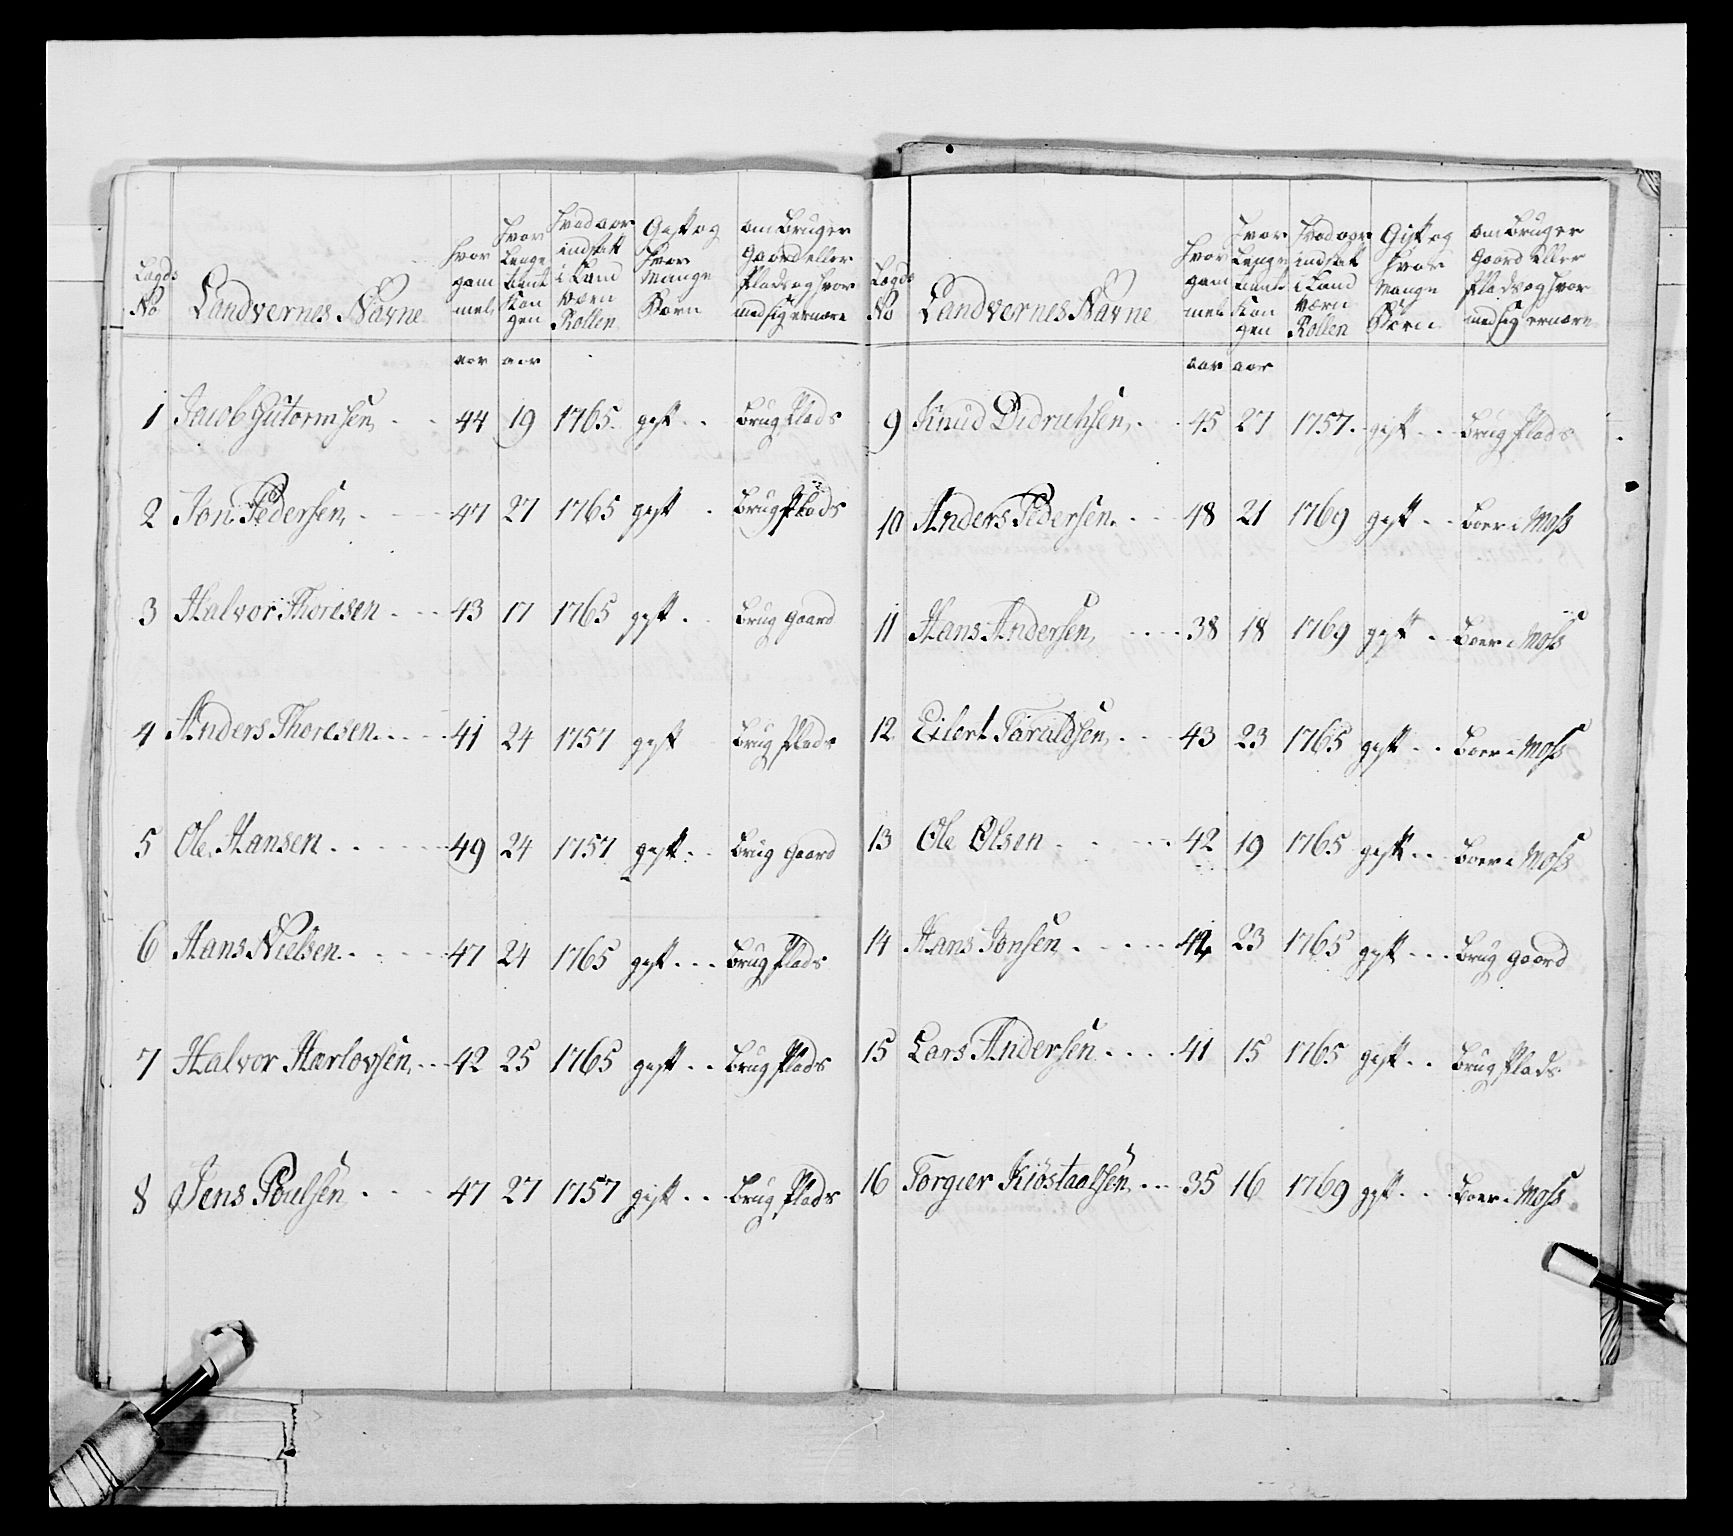 Lagds No
Landvernes Navne
Hvor gammel
Hvor Lenge tient Kongen
Hvad aar indsatt i Land værn Rollen
Gift og Hvor Mange Børn
om Bruger Gaard eller Plads og hvormed sig ernære
aar aar
1 Jacob Gutormsen 44 19 1765 gift Brug Plads
2 Jon Pedersen 47 27 1765 gift Brug Plads
3 Halvor Thoresen 43 17 1765 gift Brug gaard
4 Anders Thoresen 41 24 1757 gift Brug Plads
5 Ole Hansen 49 24 1757 gift Brug gaard
6 Hans Nielsen 47 24 1765 gift Brug Plads
7 Halvor Harlovsen 42 25 1765 gift Brug Plads
8 Jens Poulsen 47 27 1757 gift Brug Plads
Lægds No
Landvernes Navne
Hvor gammel
Hvor Lenge tient Kongen
Hvad aar indsat i Land værn Rollen
Gift og hvor Mange Børn
om Bruger Gaard Eller Plads og hvormed sig ernære
aar aar
9 Knud Didrichsen 45 27 1757 gift Brug Plads
10 Anders Pedersen 48 21 1769 gift Boer i Moss
11 Hans Andersen 38 18 1769 gift Boer i Moss
12 Eilert Taraldsen 43 23 1765 gift Boer i Moss
13 Ole Olsen 42 19 1765 gift Boer i Moss
14 Hans Jonsen 44 23 1765 gift Brug gaard
15 Lars Andersen 41 15 1765 gift Brug Plads
16 Torgier Kiöstaalsen 35 16 1769 gift Boer i Moss